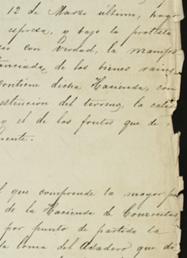 12 de Marzo último, hago
expresa, y bajo la protesta
con verdad, la manifes
tanciada, de los bienes raices
contiene dicha Hacienda, con
del terreno, la
y el de los frutos que de
mente.
que comprende la mayor
de la Hacienda de
por punto de partida la
la loma del que de